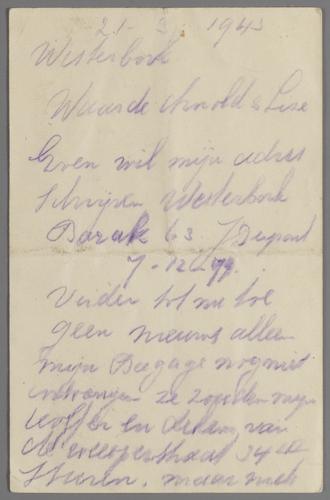 21- 1943
Westerbork
Waarde Arnold & Lise
Even wil mijn adres
schrijven Westerbork
Barak 63 J
7-12-99.
Verder tot nu toe
geen nieuws alleen
mijn Bagage nog niet
ontvangen ze zouden mijn
koffer en deken van
de 34
sturen. maar